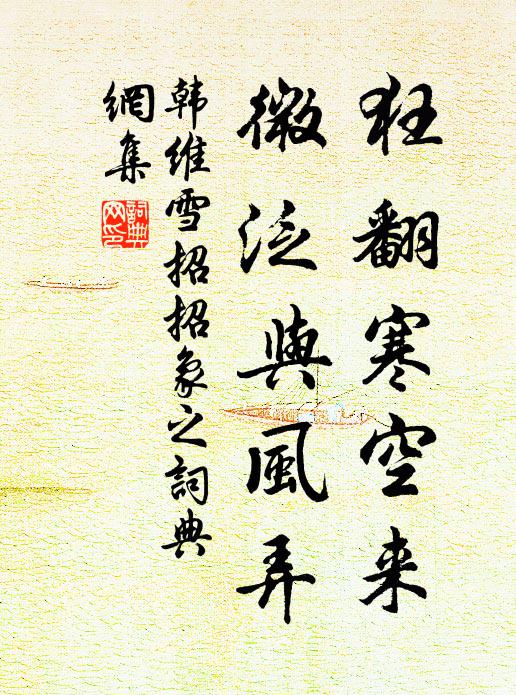 狂翻寒空来
微泛與風弄
韩維雪招招象之詞典
網集
詞典
网印